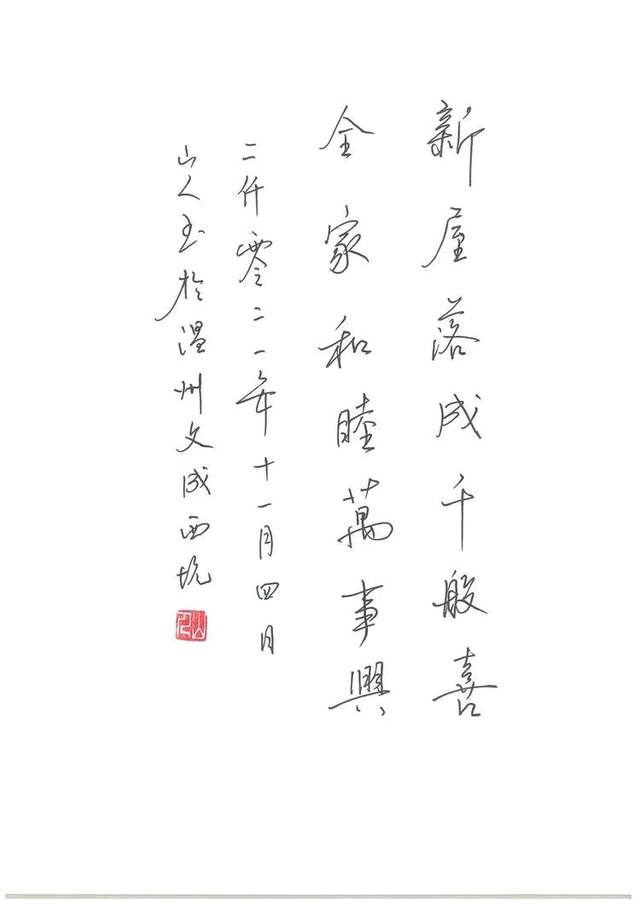 新屋落成千般喜
全家和睦萬事興
二仟零二一年十一月四日
山人书於温州文成西坑